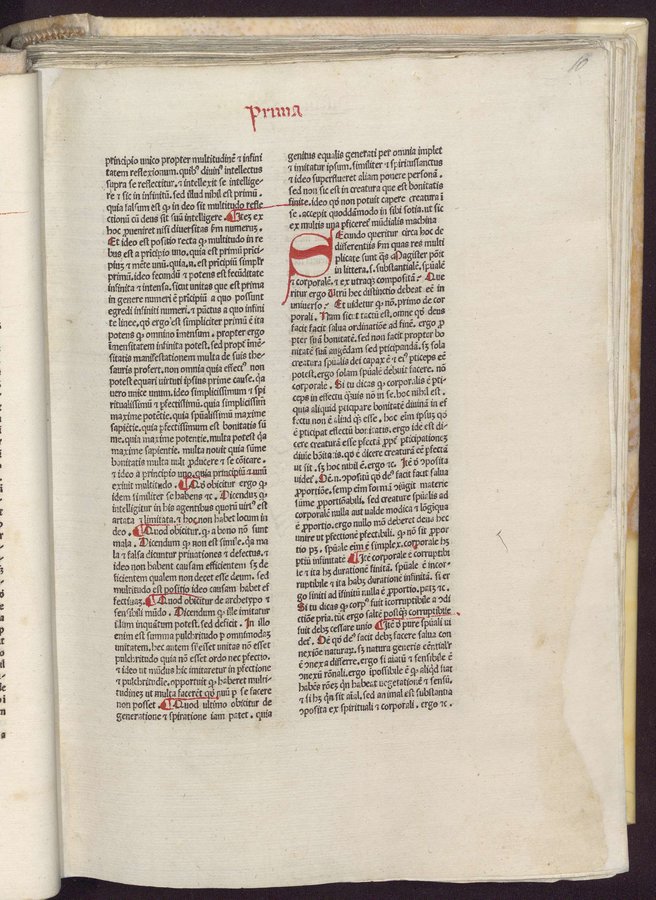 Prima
10
principio unico propter multitudinē ⁊ infini
tatem reflexionum. quibꝰ diuinꝰ intellectus
supra se reflectitur. ⁊ intellexit se intellige-
re ⁊ sic in infinitū. sed illud nihil est primū.
quia falsum est ꝙ in deo sit multitudo refle
ctionū cū deus sit suū intelligere. Itez ex
hoc ꝓueniret nisi diuersitas ẜm numeruꝫ.
Et ideo est positio recta ꝙ multitudo in re
bus est a pricipio uno. quia est primū prici-
piuꝫ ⁊ mēte unū. quia.n. est pricipiū simplr
primū. ideo fecundū ⁊ potens est fecūditate
infinita ⁊ intensa. sicut unitas que est prima
in genere numeri ē pricipiū a quo possunt
egredi infiniti numeri. ⁊ pūctus a quo infini
te linee. qđ ergo est simpliciter primū ē ita
potens ꝙ omnino īmensum. propter ergo
īmensitatem infinita potest. sed propt̄ īmē-
sitatis manifestationem multa de suis the-
sauris profert. non omnia quia effectꝰ non
potest equari uirtuti ipsius prime cause. q̄a
uero unice unum. ideo simplicissimum ⁊ spi
ritualissimū ⁊ ꝑfectissimū. quia simplicissimū
maxime potētie. quia spūalissimū maxime
sapiētie. quia ꝑfectissimum est bonitatis sū
me. quia maxime potentie. multa potest q̄a
maxime sapientie. multa nouit quia sūme
bonitatis multa uult ꝓducere ⁊ se cōicare.
⁊ ideo a principio uno. quia principiū ⁊ unū
exiuit multitudo. Qđ obicitur ergo ꝙ
idem similiter se habens ⁊c. Dicendus ꝙ
intelligitur in his agentibus quoꝝ uirtꝰ est
artata ⁊ limitata. ⁊ hoc non habet locum in
deo. Quod obicitur. ꝙ a bono nō sunt
mala. Dicendum ꝙ non est simile. q̄a ma
la ⁊ falsa dicuntur priuationes ⁊ defectus. ⁊
ideo non habent causam efficientem sꝫ de
ficientem qualem non decet esse deum. sed
multitudo est positio ideo causam habet ef
fectiuaꝫ. Quod obicitur de archetypo ⁊
sensibili mūdo. Dicendum ꝙ ille imitatur
illum inquātum potest. sed deficit. In illo
enim est summa pulchritudo ꝓ omnimodaꝫ
unitatem. hec autem si esset unitas nō esset
pulchritudo quia nō esset ordo nec ꝑfectio.
⁊ ideo ut mūdus hic imitaretur in ꝑfectione
⁊ pulchritudie. opportuit ꝙ haberet multi-
tudineꝫ ut multa facerēt qđ unū ꝑ se facere
non posset. Quod ultimo obicitur de
generatione ⁊ spiratione iam patet. quia
genitus equalis generati per omnia implet
⁊ imitatur ipsum. similiter ⁊ spiritussanctus
⁊ ideo superflueret aliam ponere personā.
sed non sic est in creatura que est bonitatis
finite. ideo qđ non potuit capere creatura ī
se. accepit quoddāmodo in sibi ſotia. ut sic
ex multis una ꝑficeret mūdialis machina
Secundo queritur circa hoc de
differentiis ẜm quas res multi
plicate sunt qꝫ Magister pōit
in littera. s. substantialē. spūalē
⁊ corporalē. ⁊ ex utraqꝫ compositā. Que
ritur ergo Utrū hec distinctio debeat eē in
uniuerso. Et uidetur ꝙ nō. primo de cor
porali. Nam sicut tactū est. omne qđ deus
facit facit salua ordinatiōe ad finē. ergo ꝓ
pter suā bonitatē. sed non facit propter bo
nitatē suā augēdam sed ꝑticipanda. sꝫ sola
creatura spūalis dei capax ē ⁊ eiꝰ ꝑticeps eē
potest. ergo solam spūalē debuit facere. nō
corporale. Si tu dicas ꝙ corporalis ē ꝑti-
ceps in effectu q̄uis nō in se. hoc nihil est.
quia aliquid ꝑticipare bonitatē diuinā in ef
fectu non ē aliud qꝫ esse. hoc em̄ ipsuꝫ qđ
ē ꝑticipat effectū bonitatis. ergo idē est di-
cere creaturā esse ꝑfectā ꝓpt̄ ꝑticipationeꝫ
diuie bōitatis. qđ ē dicere creaturā eē ꝑfectā
ut sit. sꝫ hoc nihil ē. ergo ⁊c. Itē ꝯposita
uideꞇ̄. Oē.n. ꝯpositū qđ deꝰ facit facit salua
ꝓportiōe. semp em̄ formā ꝯiūgit materie
sume ꝓportiōabili. sed creature spūalis ad
corporalē nulla aut ualde modica ⁊ lōgiqua
ē ꝓportio. ergo nullo mō deberet deus hec
unire ut ꝑfectione ꝑfectibili. ꝙ nō sit ꝓpor
tio pꝫ. spūale em̄ ē simplex. corpale hꝫ
ꝑtiū infinitatē Itē corporale ē corruptibi
le ⁊ ita hꝫ durationē finitā. spūale ē incor-
ruptibile ⁊ ita habꝫ durationē infinitā. si er
go finiti ad īfinitū nulla ē ꝓportio. patꝫ ⁊c.
Si tu dicas ꝙ corpꝰ fuit icorruptibile a ꝯdi
ctiōe pria. tūc ergo saltē postqꝫ corruptibile
fuit debꝫ cessare unio Itē ꝙ pure spūali ui
deꞇ̄. Oē qđ deꝰ facit debꝫ facere salua con
nexiōe naturaꝝ. sꝫ natura generis cēntialr
ē ꝯnexa ꝯ differre. ergo si aīatū ⁊ sensibile ē
ꝯnexū rōnali. ergo ipossibile ē ꝙ aliqđ fiat
habēs rōeꝫ qn̄ habeat uegetationē ⁊ sensū.
⁊ si hꝫ qn̄ sit aīal. sed animal est substantia
ꝯposita ex spirituali ⁊ corporali. ergo ⁊c.